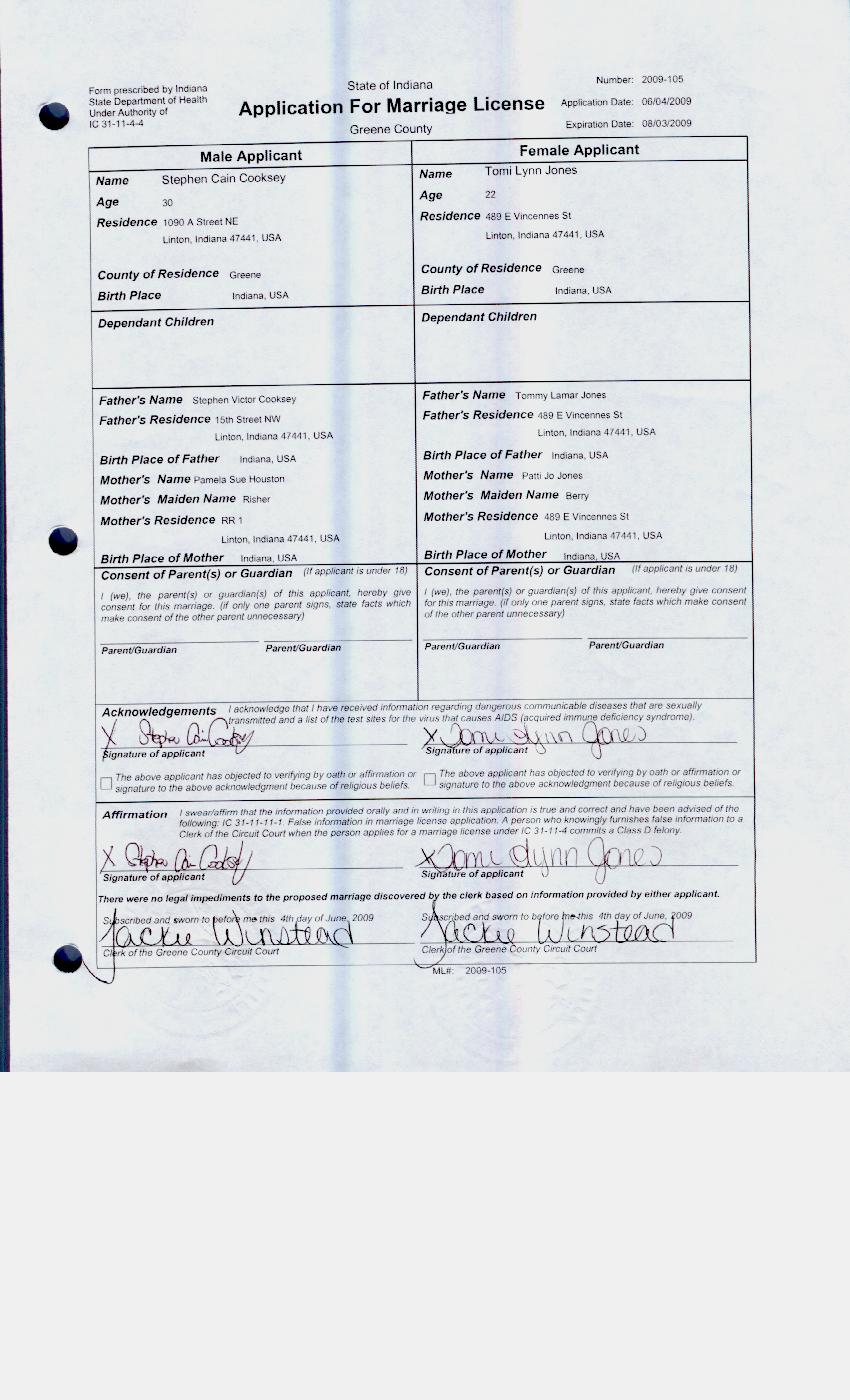 Form prescribed by Indiana
State Department of Health
Under Authority of
IC 31-11-4-4
State of Indiana
Application For Marriage License
Greene County
Number: 2009-105
Application Date: 06/04/2009
Expiration Date: 08/03/2009
Male Applicant
Name Stephen Cain Cooksey
Age 30
Residence 1090 A Street NE
Linton, Indiana 47441, USA
County of Residence Greene
Birth Place Indiana, USA
Dependant Children
Father's Name Stephen Victor Cooksey
Father's Residence 15th Street NW
Linton, Indiana 47441, USA
Birth Place of Father Indiana, USA
Mother's Name Pamela Sue Houston
Mother's Maiden Name Risher
Mother's Residence RR 1
Linton, Indiana 47441, USA
Birth Place of Mother Indiana, USA
Consent of Parent(s) or Guardian (If applicant is under 18)
I (we), the parent(s) or guardian(s) of this applicant, hereby give
consent for this marriage. (if only one parent signs, state facts which
make consent of the other parent unnecessary)
Parent/Guardian Parent/Guardian
Female Applicant
Name Tomi Lynn Jones
Age 22
Residence 489 E Vincennes St
Linton, Indiana 47441, USA
County of Residence Greene
Birth Place Indiana, USA
Dependant Children
Father's Name Tommy Lamar Jones
Father's Residence 489 E Vincennes St
Linton, Indiana 47441, USA
Birth Place of Father Indiana, USA
Mother's Name Patti Jo Jones
Mother's Maiden Name Berry
Mother's Residence 489 E Vincennes St
Linton, Indiana 47441, USA
Birth Place of Mother Indiana, USA
Consent of Parent(s) or Guardian (If applicant is under 18)
I (we), the parent(s) or guardian(s) of this applicant, hereby give consent
for this marriage. (if only one parent signs, state facts which make consent
of the other parent unnecessary)
Parent/Guardian Parent/Guardian
Acknowledgements I acknowledge that I have received information regarding dangerous communicable diseases that are sexually
transmitted and a list of the test sites for the virus that causes AIDS (acquired immune deficiency syndrome).
X Stephen Cain Cooksey X Tomi Lynn Jones
Signature of applicant Signature of applicant
The above applicant has objected to verifying by oath or affirmation or
signature to the above acknowledgment because of religious beliefs.
The above applicant has objected to verifying by oath or affirmation or
signature to the above acknowledgment because of religious beliefs.
Affirmation I swear/affirm that the information provided orally and in writing in this application is true and correct and have been advised of the
following: IC 31-11-11-1. False information in marriage license application. A person who knowingly furnishes false information to a
Clerk of the Circuit Court when the person applies for a marriage license under IC 31-11-4 commits a Class D felony.
X Stephen Cain Cooksey X Tomi Lynn Jones
Signature of applicant Signature of applicant
There were no legal impediments to the proposed marriage discovered by the clerk based on information provided by either applicant.
Subscribed and sworn to before me this 4th day of June, 2009 Subscribed and sworn to before me this 4th day of June, 2009
Jackie Winstead Jackie Winstead
Clerk of the Greene County Circuit Court Clerk of the Greene County Circuit Court
ML#: 2009-105